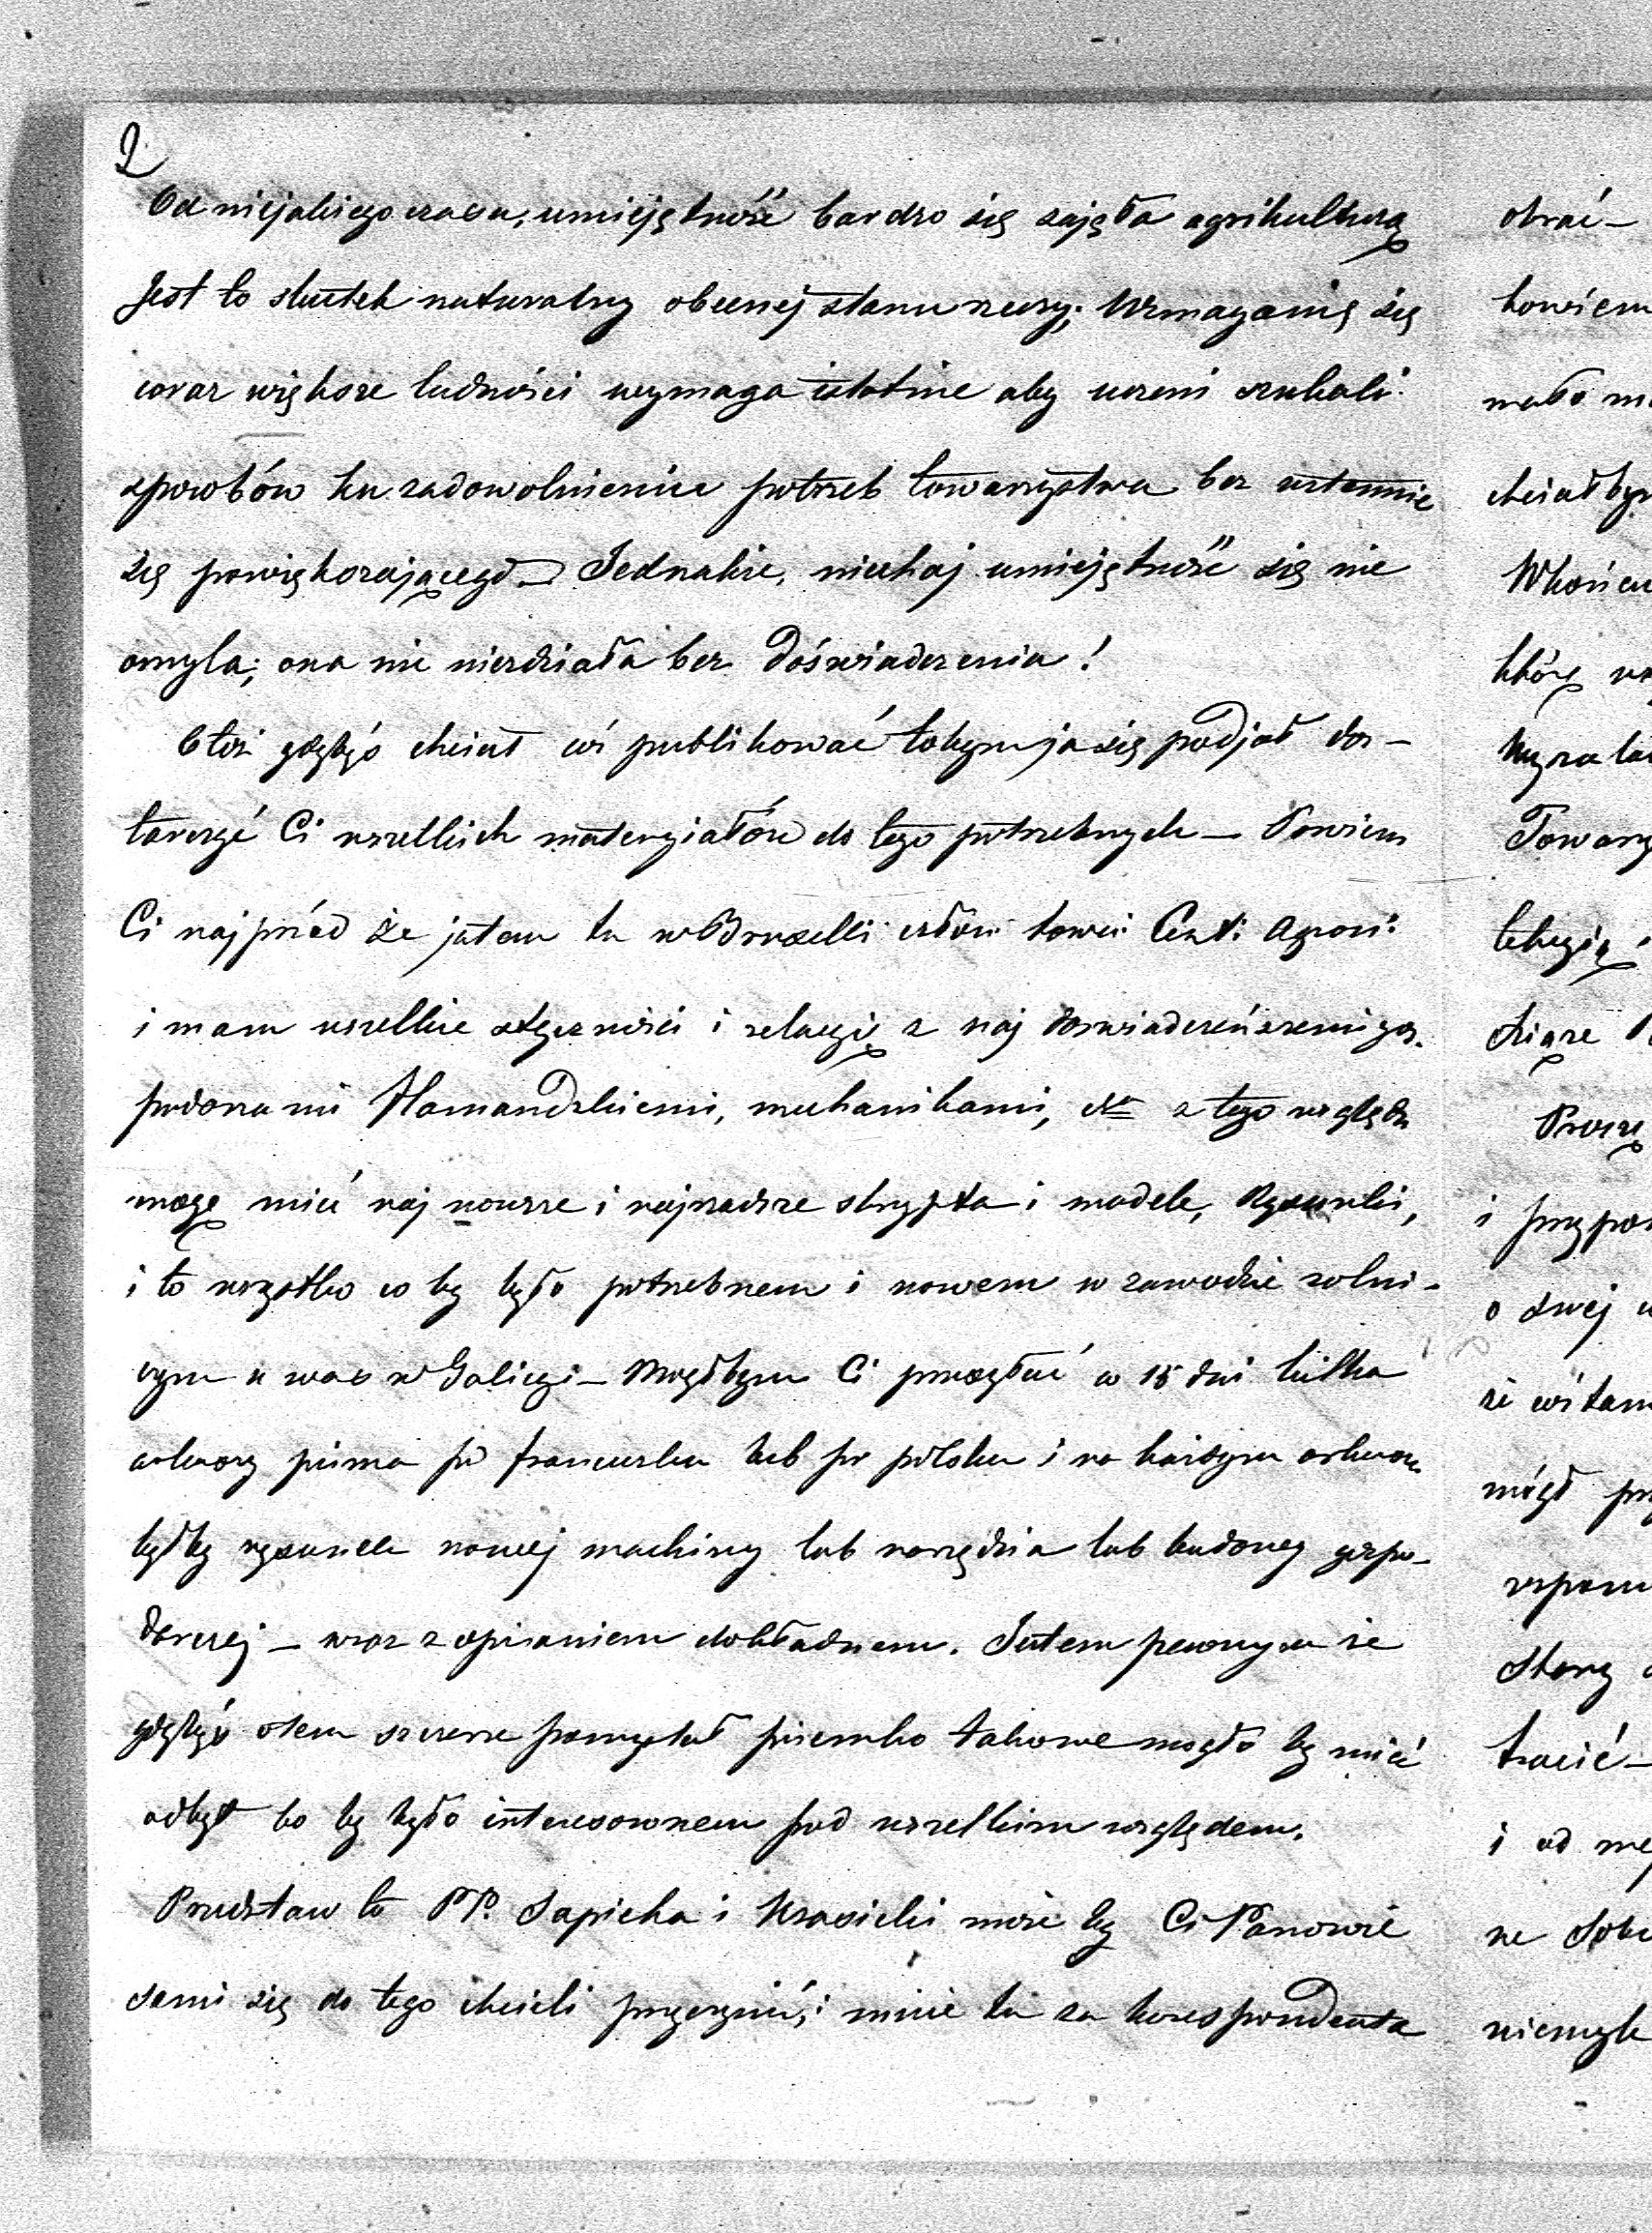 2
Od niejakiego czasu, umiejętność bardzo się zajęła agrikulturą
Jest to skutek naturalny obecnej stanu rzeczy; Wzmaganie się
coraz większe ludności wymaga istotnie aby uczeni szukali
sposobów ku zadowolnieniu potrzeb towarzystwa bez ustannie
się powiększającego — Jednakże, niechaj umiejętność się nie
omyla; ona nic niezdziała bez doświadczenia!
Otóż gdybyś chciał coś publikować tobym ja się podjął dos-
tarczyć Ci wszelkich materyiałów do tego potrzebnych — Powiem
Ci najprzód że jestem tu w Bruxelli człon: towa: Cent: Agron:
i mam wszelkie styczności i relacyię z naj doswiadczeńszemi gos-
podarzami Flamandzkiemi, mechanikami, etc z tego względu
mogę mieć naj nowsze i najrzadsze skrypta i modele, Rysunki,
i to wszystko co by było potrzebnem i nowem w zawodzie rolni-
czym u was w Galicyi — Mogłbym Ci przesyłać co 15 dni kilka
arkuszy pisma po francusku lub po polsku i na każdym arkuszu
byłby rysunek nowej machiny lub narzędzia lub budowy gospo-
darczej — wraz z opisaniem dokładnem. Jestem pewnym że
gdybyś otem szczerze pomyślał pisemko takowe mogło by mieć
odbyt bo by było interesownem pod wszelkim względem.
Przedstaw to PP. Sapieha i Krasicki może by Ci Panowie
sami się do tego chcieli przyczynić, i mnie tu za korespondenta
obrać —
bowiem
mało
chciałbym
Wkońcu
którę
Towarz
Proszę
i
o swej
że coś tam
mógł
Stary
tracić —
i od
ne